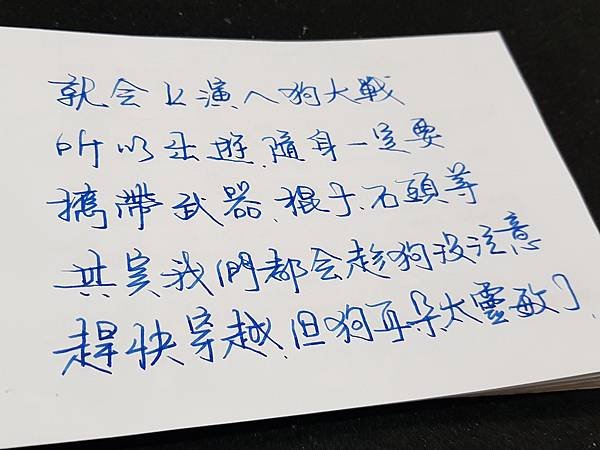 就会上演人狗大戰
所以出遊、隨身一定要
攜帶武器、棍子、石頭等
其实我們都会趁狗没注意
趕快穿越、但狗耳朵太靈敏了、